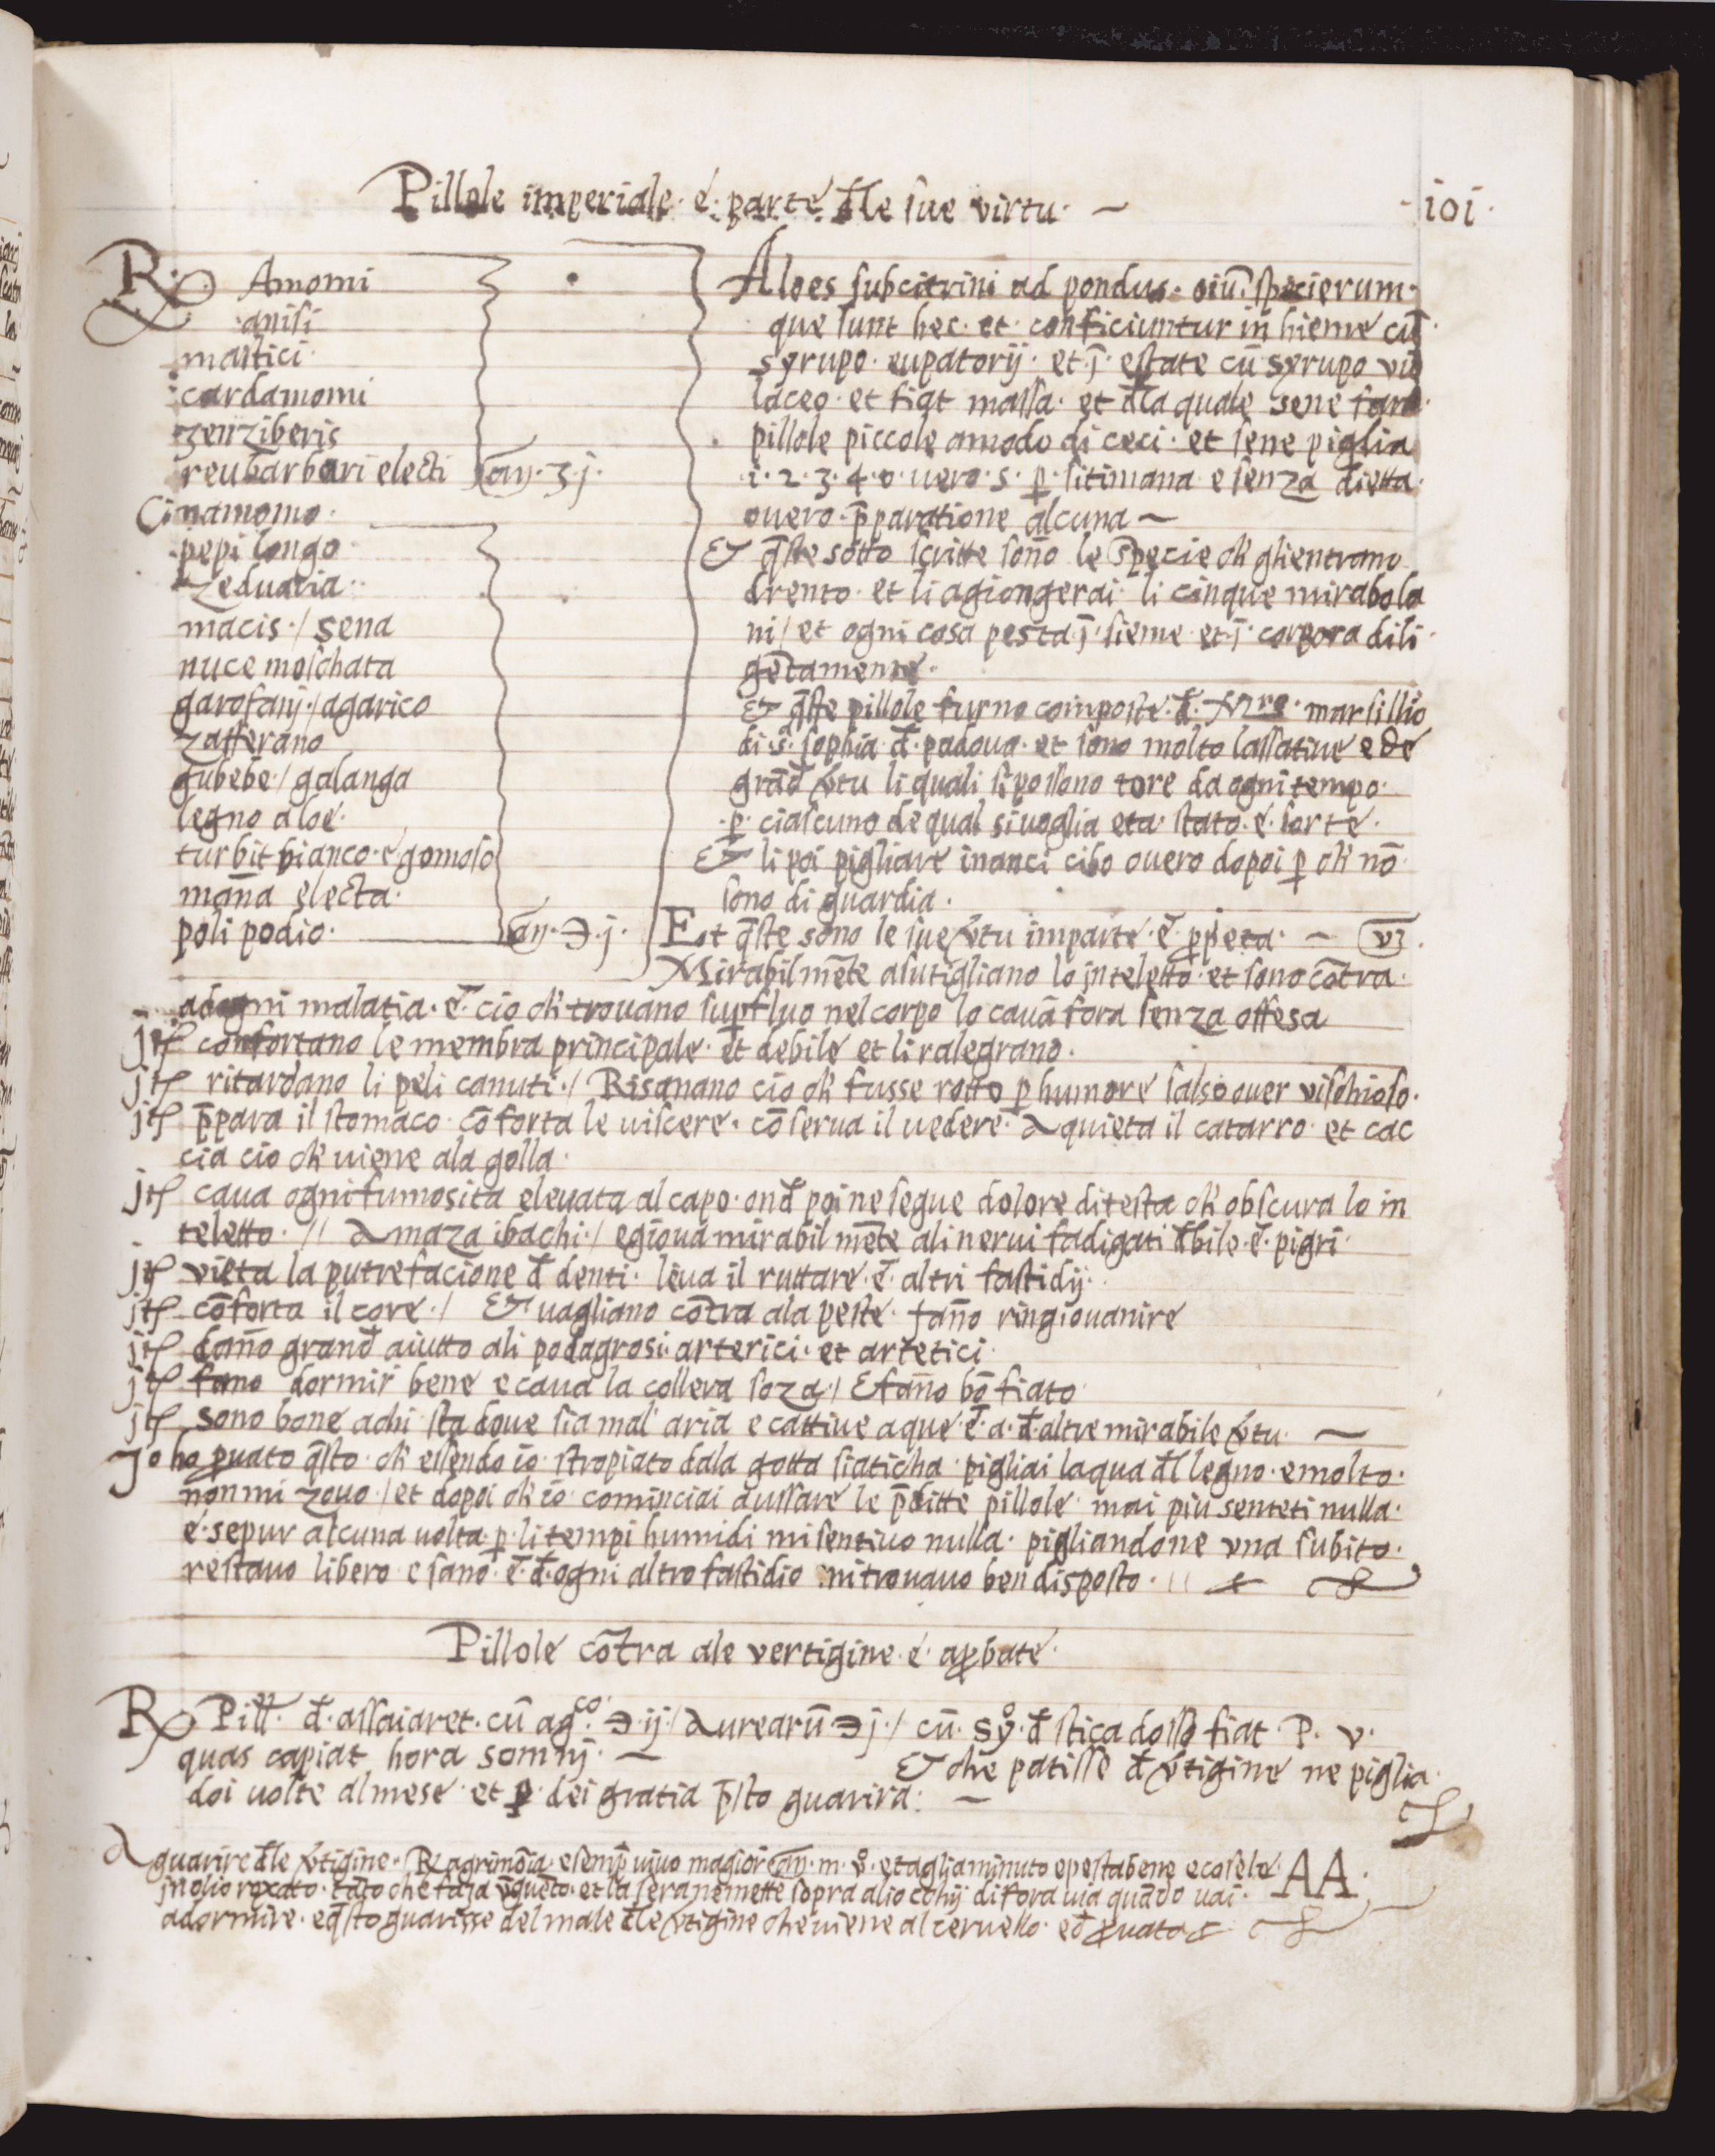 Pillole imperiale · é · parte đle sue virtu · ~
· 101 ·
R Amomi
anisi
mastici
cardamomi
zenziberis
reubarbari electi añ · ʒ · j ·
Cinamomo ·
pepi longo
zeduaria
macis · / sena
nuce moschata
garofanij · / agarico
zafferano
gubebe · / galanga
legno aloe ·
turbit bianco · e gomoso
mañа electa ·
poli podio · añ · ℈ · j ·
Aloes subcitrini ad pondus · oiū specierum ·
que sunt hec · et · conficiuntur in hieme cū ·
syrupo · eupatorij · et · j̄ · estate cū syrupo vio
laceo · et fiat massa · et đla quale sene fano ·
pillole piccole amodo di ceci · et sene piglia
i · 2 · 3 · 4 · o · uero · 5 · p̱ · sitimana e senza dietta ·
ouero · p̄paratione alcuna ~
Et q̄ste sotto scritte soño le specie ch' ghientrano
drento · et li agiongerai · li cinque mirabola
ni / et ogni cosa pesta j̄ · sieme · et · j̄ · corpora dili ·
gētamente ·
Et q̄ste pillole furno composte · đ · Mro · marsillio
di · s̄ · sophia · đ · padoua · et sono molto lassatiue e de
grād v̄tu li quali si possono tore da ogni tempo ·
· p̱ · ciascuno de qual si uoglia eta · stato · é · sorte ·
Et li poi pigliare inanci cibo ouero dopoi p̱ ch' nō
sono di guardia ·
Et q̄ste sono le sue v̄tu imparte · ē · ~ v3 ·
Mirabilmēte asutigliano lo jnteletto · et sono cōtra ·
adogni malatia · ē · cio ch' trouano sup̱fluo nel corpo lo cauā fora senza offesa
jt̄ confortano le membra principale · et debile et li ralegrano ·
jt̄ ritardano li peli canuti · / Risanano cio ch' fusse rotto p̱ humore salso ouer vischioso ·
jt̄ p̄para il stomaco · cōforta le uiscere · cōserua il uedere · Aquieta il catarro · et cac
cia cio ch' uiene ala golla ·
jt̄ caua ogni fumosita eleuata al capo · onđ poi ne segue dolore di testa ch' obscura lo in
teletto · // Amaza ibachi · / e gioua mirabilmēte ali nerui fadigati đbile · ē · pigri ·
jt̄ vieta la putrefacione đ denti · leua il ruttare · ē · altri fastidij ·
jt̄ cōforta il core · / Et uagliano cōtra ala peste · fañо ringiouanire
jt̄ dañо granđ aiutto ali podagrosi · arterici · et artetici ·
jt̄ fano dormir bene e caua la collera soza · / E fañо bō fiato
jt̄ sono bone achi sta doue sia mal aria e cattiue aque · ē · a · đ · altre mirabile v̄tu · ~
Jo ho p̱uato q̄sto · ch' essendo io · stropiato dala gotta siaticha · pigliai laqua đl legno · e molto ·
non mi zouo · / et dopoi ch' io cominciai aussare le p̄ditte pillole · mai piu senteti nulla ·
e · sepur alcuna uolta · p̱ · li tempi humidi mi sentiuo nulla · pigliandone vna subito ·
restauo libero e sano · ē · đ · ogni altro fastidio mi trouauo ben disposto ·
Pillole cōtra ale vertigine · é · ap̱bate ·
R Pill · đ · assaiaret · cū agco · ℈ · ij · / Aurearū ℈ j · / cū · sy̆ · đ sticadosso fiat · P · v ·
quas capiat hora somnij · ~ Et che patisse đ v̄tigine ne piglia ·
doi uolte al mese · et p̱ · dei gratia p̄sto guarira : ~
A guarire đle v̄tigine · / R agrimōia · e semp̱ uiuo magior añ · m · et aglia minuto e pesta bene e cosele · AA ·
jn olio roxato · tāto che faza v̄guēto · et la sera ne mette sopra di fora uia quādo uai ·
adormire · e q̄sto guarisse del male đle v̄tigine che uiene al ceruello · ed p̱uato